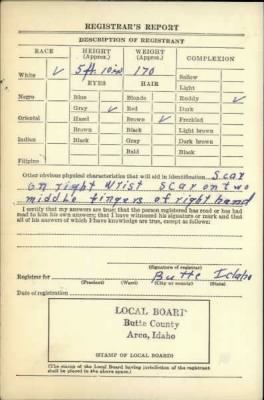 REGISTRAR'S REPORT
DESCRIPTION OF REGISTRANT
RACE HEIGHT (Approx.) WEIGHT (Approx.) COMPLEXION
White ✓ 5 ft 10 in 170 Sallow
EYES HAIR Light
Negro Blue Blonde Ruddy ✓
Gray ✓ Red Dark
Oriental Hazel Brown ✓ Freckled
Brown Black Light brown
Indian Black Gray Dark brown
Bald Black
Filipino
Other obvious physical characteristics that will aid in identification Scar
on right wrist scar on two
middle fingers of right hand
I certify that my answers are true; that the person registered has read or has had
read to him his own answers; that I have witnessed his signature or mark and that
all of his answers of which I have knowledge are true, except as follows:
(Signature of registrar)
Registrar for Butte Idaho
(Precinct) (Ward) (City or county) (State)
Date of registration
LOCAL BOARD
Butte County
Arco, Idaho
(STAMP OF LOCAL BOARD)
(The stamp of the Local Board having jurisdiction of the registrant
shall be placed in the above space.)